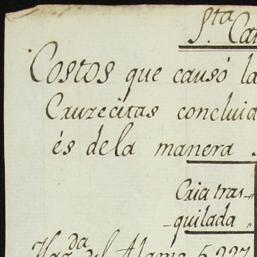 Sta Ca
Costos que causó la
Cruzecitas concluid
és dela manera
Cria tras-
-quilada
Hazda del Alamo 5.227